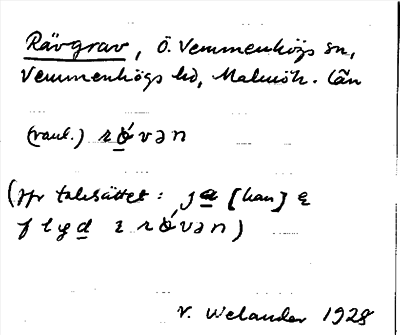 Rävgrav, Ö. Vemmenhögs sn,
Vemmenhögs hd, Malmöh. län
(vard.) rǿvən
(jfr talesättet: ja [han] e
i rǿvən)
V. Welander 1928